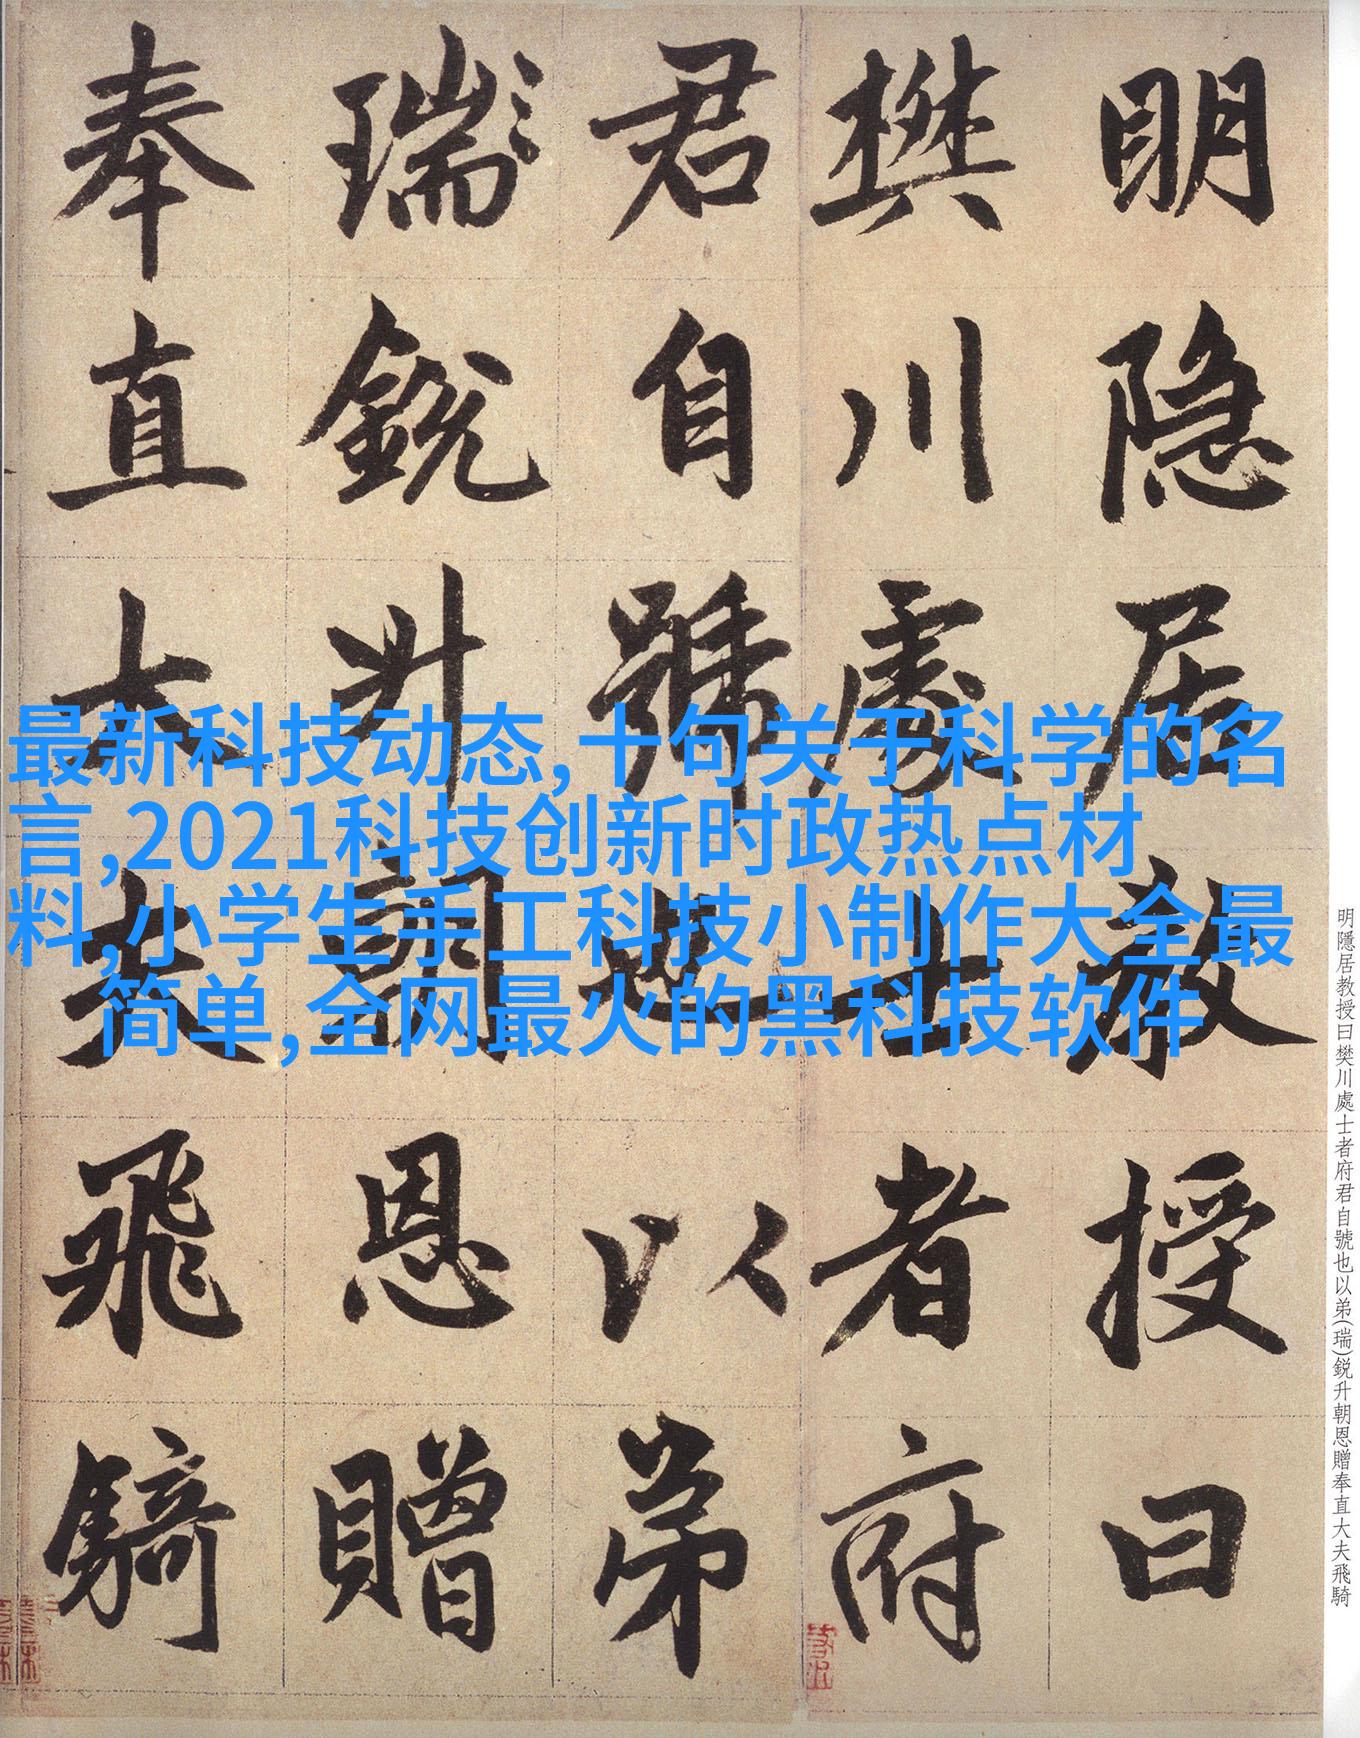 明隐居教授曰
樊川處士者府
君自號也以弟
瑞銳升朝恩贈
奉直大夫飛騎
最新科技动态,十句关于科学的名
言,2021科技创新时政热点材
料,小学生手工科技小制作大全最
简单,全网最火的黑科技软件
明隱居教授曰樊川處士者府君自號也以弟(瑞)鋭升朝恩贈奉直大夫飛騎